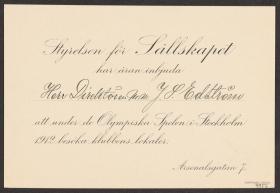 Styrelsen för Sällskapet
har äran inbjuda
Herr Direktören m.m. J S Edström
att under de Olympiska Spelen i Stockholm
1912 besöka klubbens lokaler.
Arsenalsgatan 7.